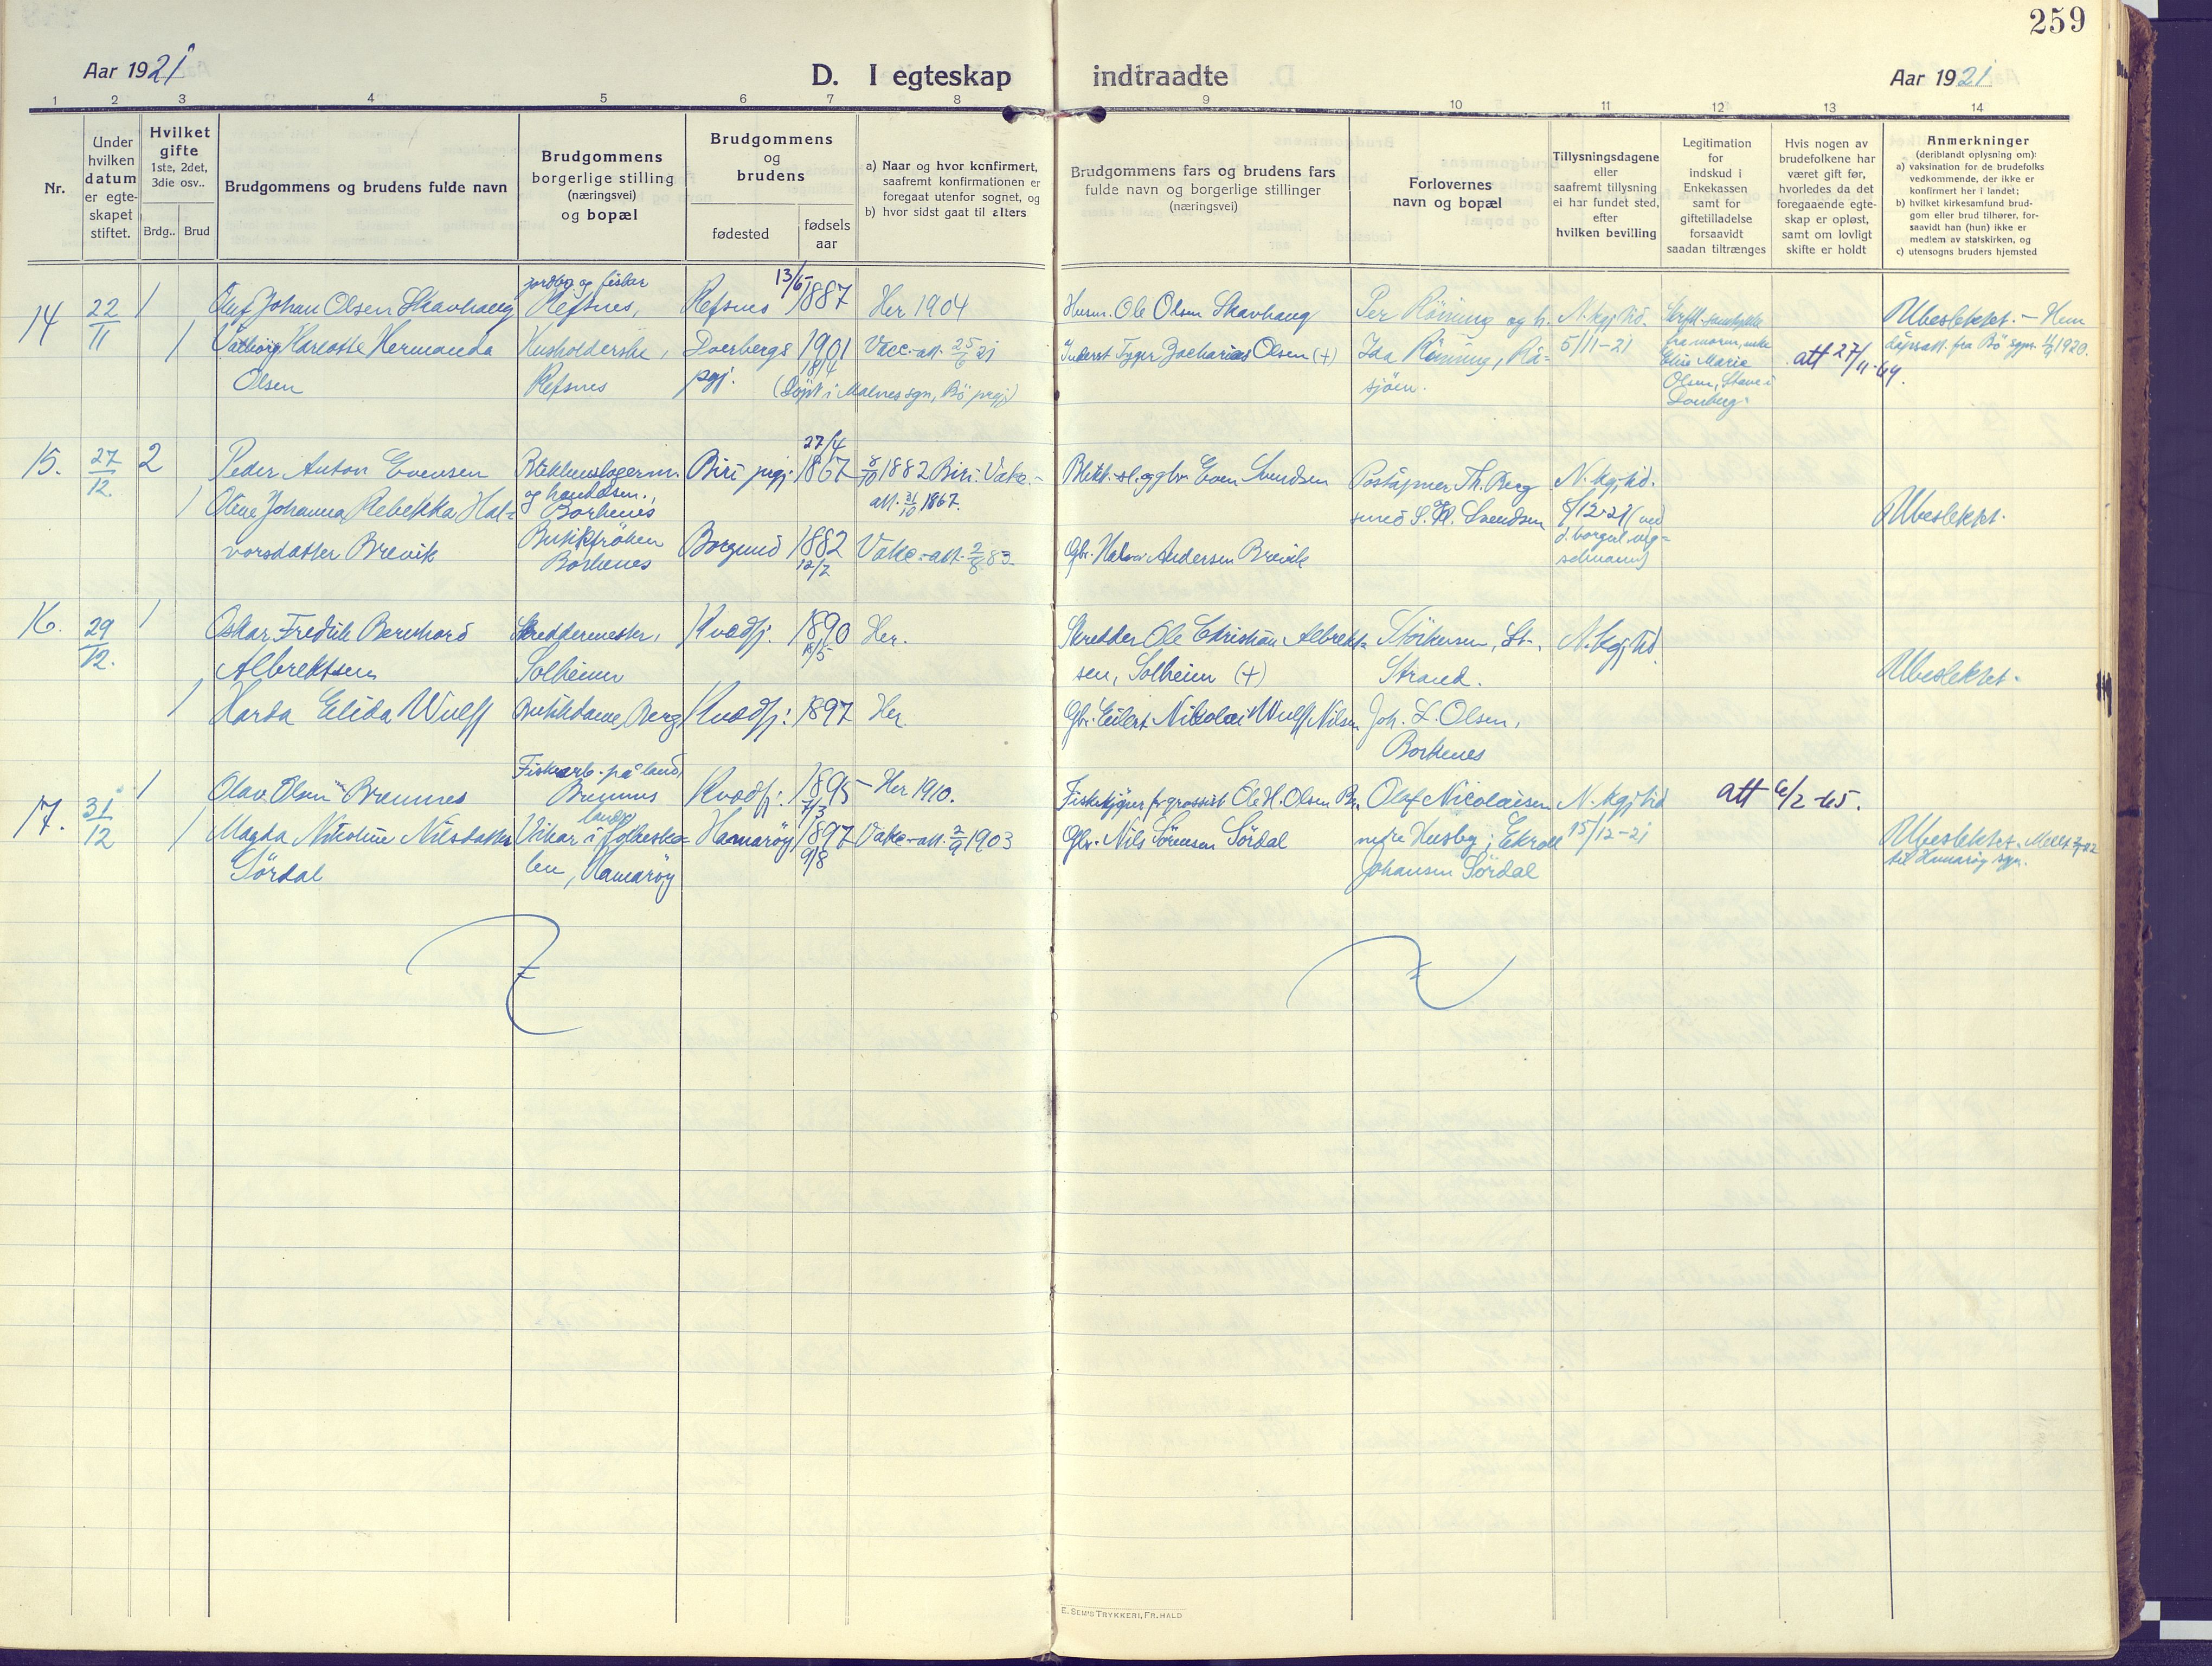 259
Aar 1921
D. I egteskap indtraadte
Aar 1921
1 2 3 4 5 6 7 8 9 10 11 12 13 14
Nr.
Under
hvilken
datum
er egte-
skapet
stiftet.
Hvilket
gifte
1ste, 2det,
3die osv..
Brdg.. Brud
Brudgommens og brudens fulde navn
Brudgommens
borgerlige stilling
(næringsvei)
og bopæl
Brudgommens
og
brudens
fødested
fødsels
aar
a) Naar og hvor konfirmert,
saafremt konfirmationen er
foregaat utenfor sognet, og
b) hvor sidst gaat til alters
Brudgommens fars og brudens fars
fulde navn og borgerlige stillinger
(næringsvei)
Forlovernes
navn og bopæl
Tillysningsdagene
eller
saafremt tillysning
ei har fundet sted,
efter
hvilken bevilling
Legitimation
for
indskud i
Enkekassen
samt for
giftetilladelse
forsaavidt
saadan tiltrænges
Hvis nogen av
brudefolkene har
været gift før,
hvorledes da det
foregaaende egte-
skap er opløst,
samt om lovligt
skifte er holdt
Anmerkninger
(deriblandt oplysning om):
a) vaksination for de brudefolks
vedkommende, der ikke er
konfirmert her i landet;
b) hvilket kirkesamfund brud-
gom eller brud tilhører, for-
saavidt han (hun) ikke er
medlem av statskirken, og
c) utensogns bruders hjemsted
14 22/11 1 Johan Olsen Skavhaug
jordbr. og fisker
Refsnes,
Refsnes 13/6 1887 Her 1904
Husm. Ole Olsen Skavhaug
Per Röining og h. N. kgj. tid.
Ubeslektet. – Hun
1 Valborg Hermanda
Olsen
Husholderske,
Refsnes
Dverbergs
pgj.
1901
18/4
Vacc-att. 25/6 21
(Döpt i Malnes sgn, Bö prgj)
Zacharias Olsen (+)
Ida Röining,
sjöen.
5/11-21
Skriftl. samtykke
fra moren, enke
Marie
Olsen,
att 27/11-64.
dåpsatt. fra Bö sgn. 1920.
15. 27/12. 2 Peder Anton Evensen
Blikkenslagerm.
og handelsm.,
Borkenes
Biri pgj. 27/4 1867
8/10 1882 Biri. Vakc.-
att. 1867.
Even Svendsen
Poståpner Th. Berg
smed Svendsen
N. kgj. tid.
1 Oline Johanna Rebekka Hal-
vorsdatter Brevik
Butikfröken
Borkenes
Borgund 1882
12/2
Vakc-att. 83
Gbr. Halvor Andersen Brevik
Ubeslektet.
16. 29/12. 1 Oskar Fredrik Bernhard
Albrektsen
Skreddermester,
Solheim
Kvædfj. 1890
Her.
Skredder Ole Christian Albrekt-
sen, Solheim (+)
Störkersen, St.,
Strand.
N. kgj. tid.
Ubeslektet.
1 Harda Elida Wulff
Butikdame, Berg
Kvædfj. 1897 Her.
Gbr. Eilert Nikolai Wulff Nilsen
Joh. L. Olsen,
Borkenes
17. 31/12 1 Olav Olsen Bremnes
Fiskearb. på land,
Bremnes
Kvædfj. 1895
7/3
Her 1910.
Fiskekjöper Ole H. Olsen
Olaf Nicolaisen
N. kgj. tid
15/12-21
att 6/2-65.
1 Magda Nicoline Nilsdatter
Sördal
Vikar i folkesko-
len, Hamaröy
Hamaröy 1897
9/8
Vakc-att. 2/9 1903
Gbr. Nils Sörensen Sördal
nedre Husby; Ekroll
Johansen Sördal
Ubeslektet.
til Hamaröy sgn.
E. SEM'S TRYKKERI, FR.HALD